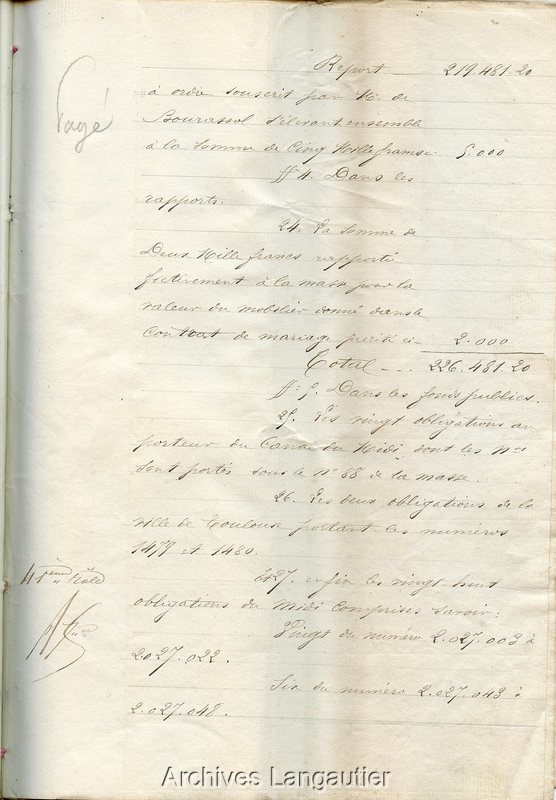 Report 219.481.20
Payé
à ordre souscrit par M. de
Bourassol s'élevant ensemble
à la somme de Cinq Mille francs 5.000
§ 4. Dans les
rapports.
24. La somme de
Deux Mille francs rapporté
fictivement à la masse pour la
valeur du mobilier donné dans le
Contrat de mariage précité ci 2.000
Total --- 226.481.20
§ 5. Dans les fonds publics.
25. Les vingt obligations au
porteur du Canal du Midi, dont les Nos
sont portés sous le No 88 de la masse.
26. Les deux obligations de la
ville de Toulouse portant les numéros
1479 et 1480.
41ème Rôle
Et 27. enfin les vingt huit
obligations du Midi comprises savoir:
Vingt du numéro 2.027.003 à
2.027.022.
Six du numéro 2.027.043 à
2.027.048.
Archives Langautier